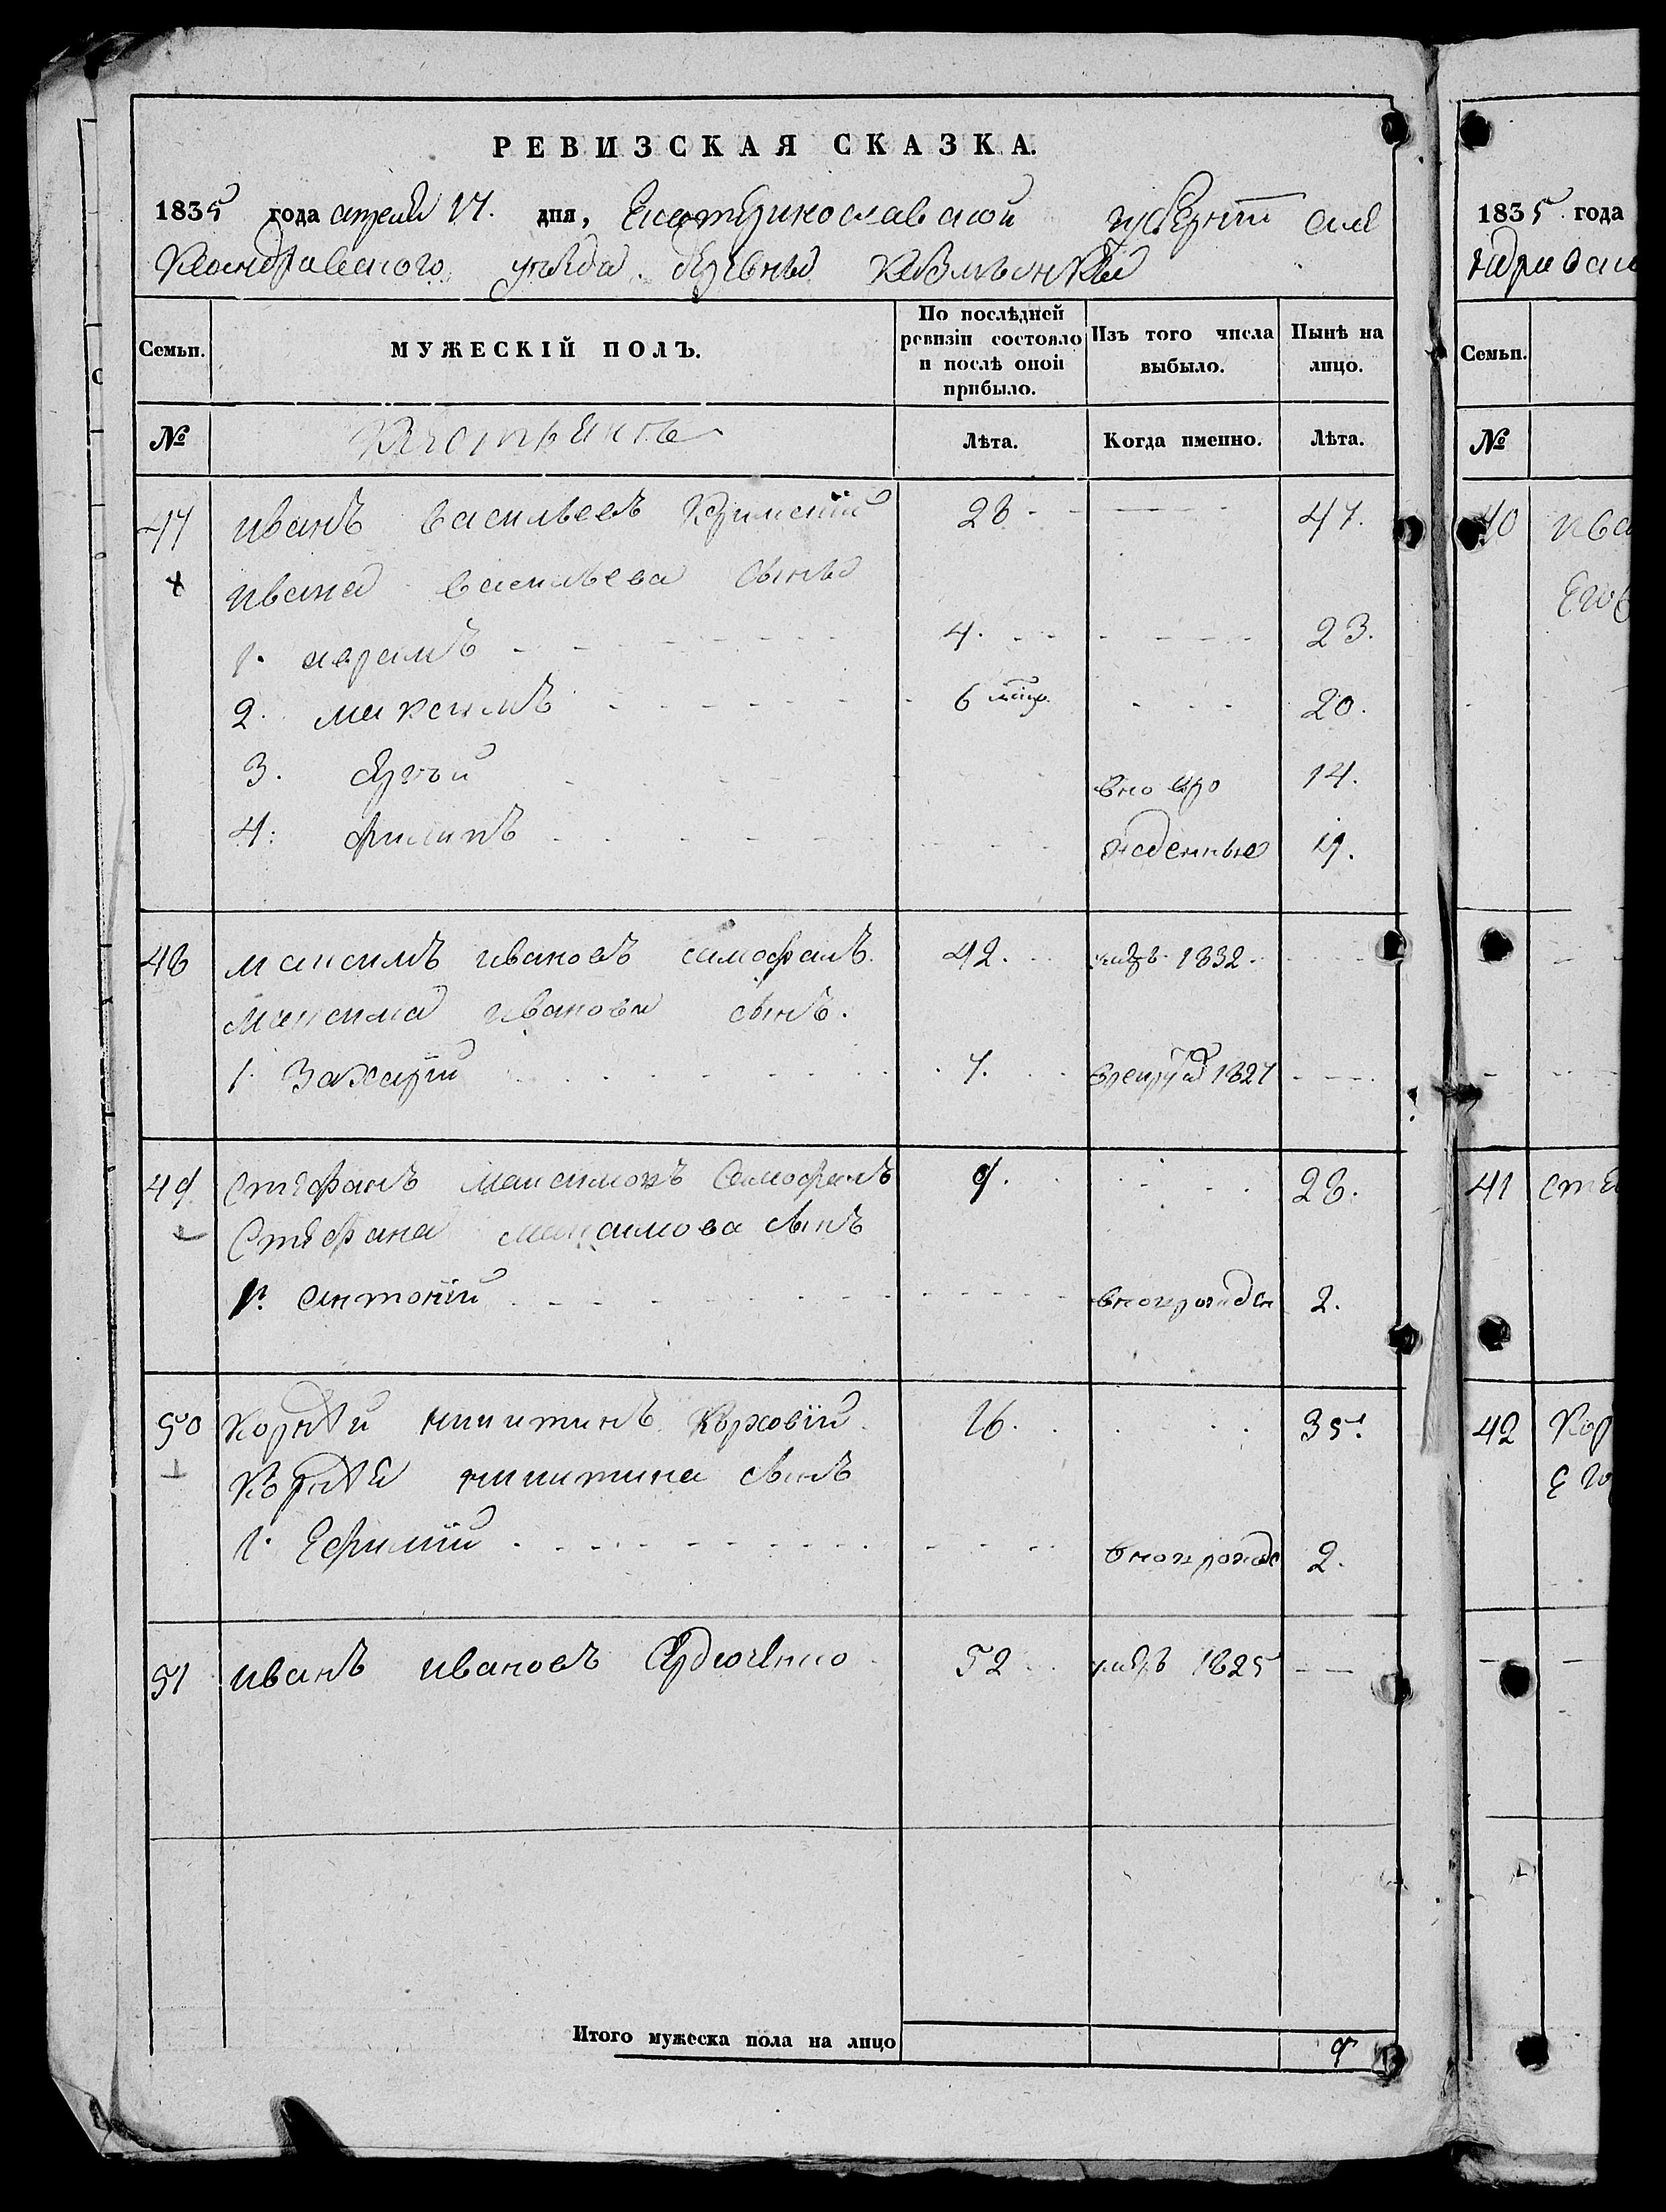 РЕВИЗСКАЯ СКАЗКА.
1835 года апреля 17. дня, Екатеринославской губернии Але
ксандравского уезда. деревни
Семьи. МУЖЕСКІЙ ПОЛЪ. По послѣдней ревизіи состояло и послѣ оной прибыло. Изъ того числа выбыло. Нынѣ на лицо.
№ Крестьяне Лѣта. Когда именно. Лѣта.
47 иванъ васильевъ Кримскій 28 47.
ивана васильева сыны
1. аврамъ 4. 23.
2. максимъ 6 мѣц. 20.
3. сергей вно вро 14.
4. филипъ жденные 9.
48 максимъ ивановъ самофалъ. 42. умеръ 1832.
максима иванова сынъ.
1. Захарій 7. врекруты 1827
49 Стефанъ максимовъ Самофалъ 9. 28.
Стефана максимова сынъ
1. антоній вновърожден 2.
50 Корней никитинъ Коржовій 16. 35.
Корнея никитина сынъ
1. Ефимій вноврожде 2.
51 иванъ ивановъ Сердюченко 52 умеръ 1825
Итого мужеска пола на лицо 9
1835 года
ндравск
Семьи.
№
40 ива
Его
41 Сте
42 Кор
его